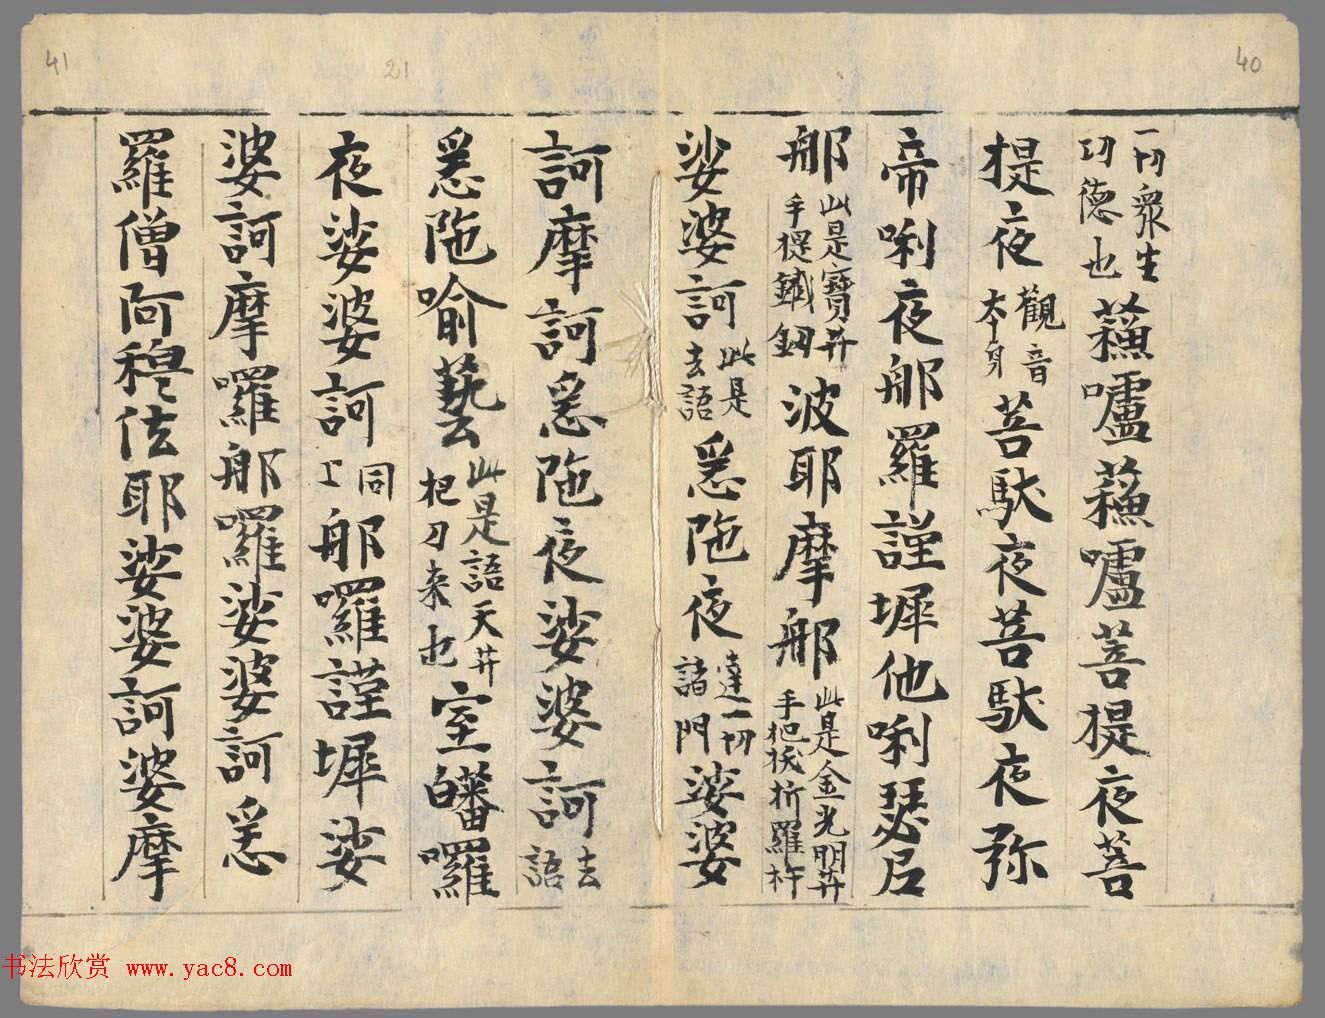 一切衆生
功德也蘓嚧蘓嚧菩提夜菩
提夜觀音本身菩馱夜菩馱夜弥
帝唎夜那羅謹墀他唎瑟尼
那此是寶𦬇手提鐵釰波耶摩那此是金光明𦬇手把 折羅杵
娑婆訶此是去語悉陁夜達一切諸門娑婆
訶摩訶悉陁夜娑婆訶去語
悉陁喻藝此是語天𦬇把刀来也室皤囉
夜娑婆訶同上那囉謹墀娑
婆訶摩囉那囉娑婆訶悉
羅僧阿穆佉耶娑婆訶婆摩
40
41
21
书法欣赏 www.yac8.com